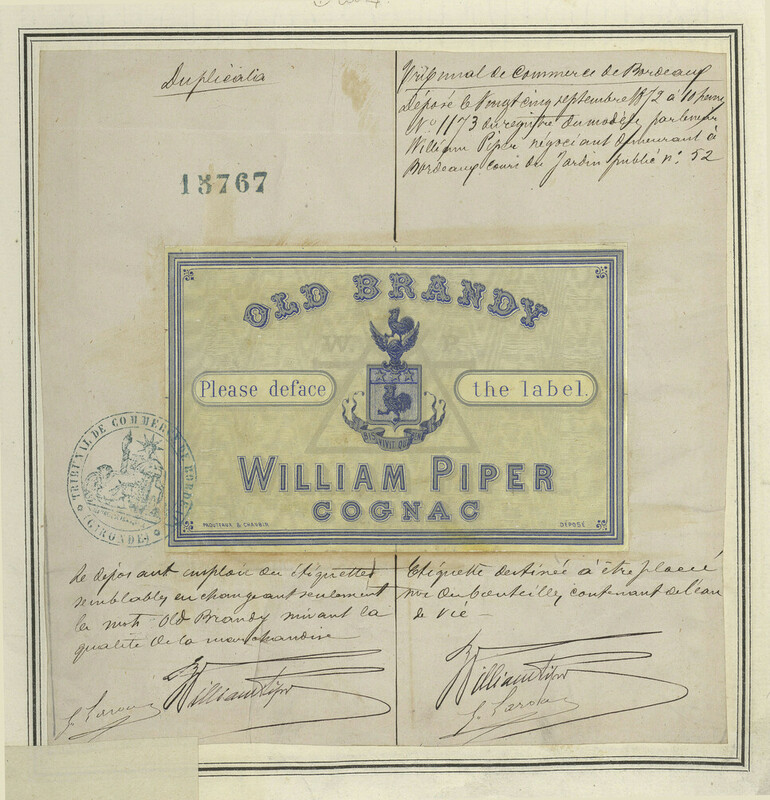 Duplicata
Tribunal de Commerce de Bordeaux
Déposé le Vingt cinq septembre 1872 à 10 heures
No 1173 du registre du modèle par lesieur
William Piper négociant demeurant à
Bordeaux cours du Jardin public no. 52
13767
OLD BRANDY
W. P.
Please deface
the label.
BIS VIVIT QUI
WILLIAM PIPER
COGNAC
PROUTEAUX & CHASSIN
DÉPOSÉ
TRIBUNAL DE COMMERCE DE BORDEAUX
(GIRONDE)
Le déposant emploie des étiquettes
semblables en changeant seulement
les mots Old Brandy suivant la
qualité de la marchandise
Etiquette destinée à être placée
sur des bouteilles contenant de l'eau
de vie
William Piper
William Piper